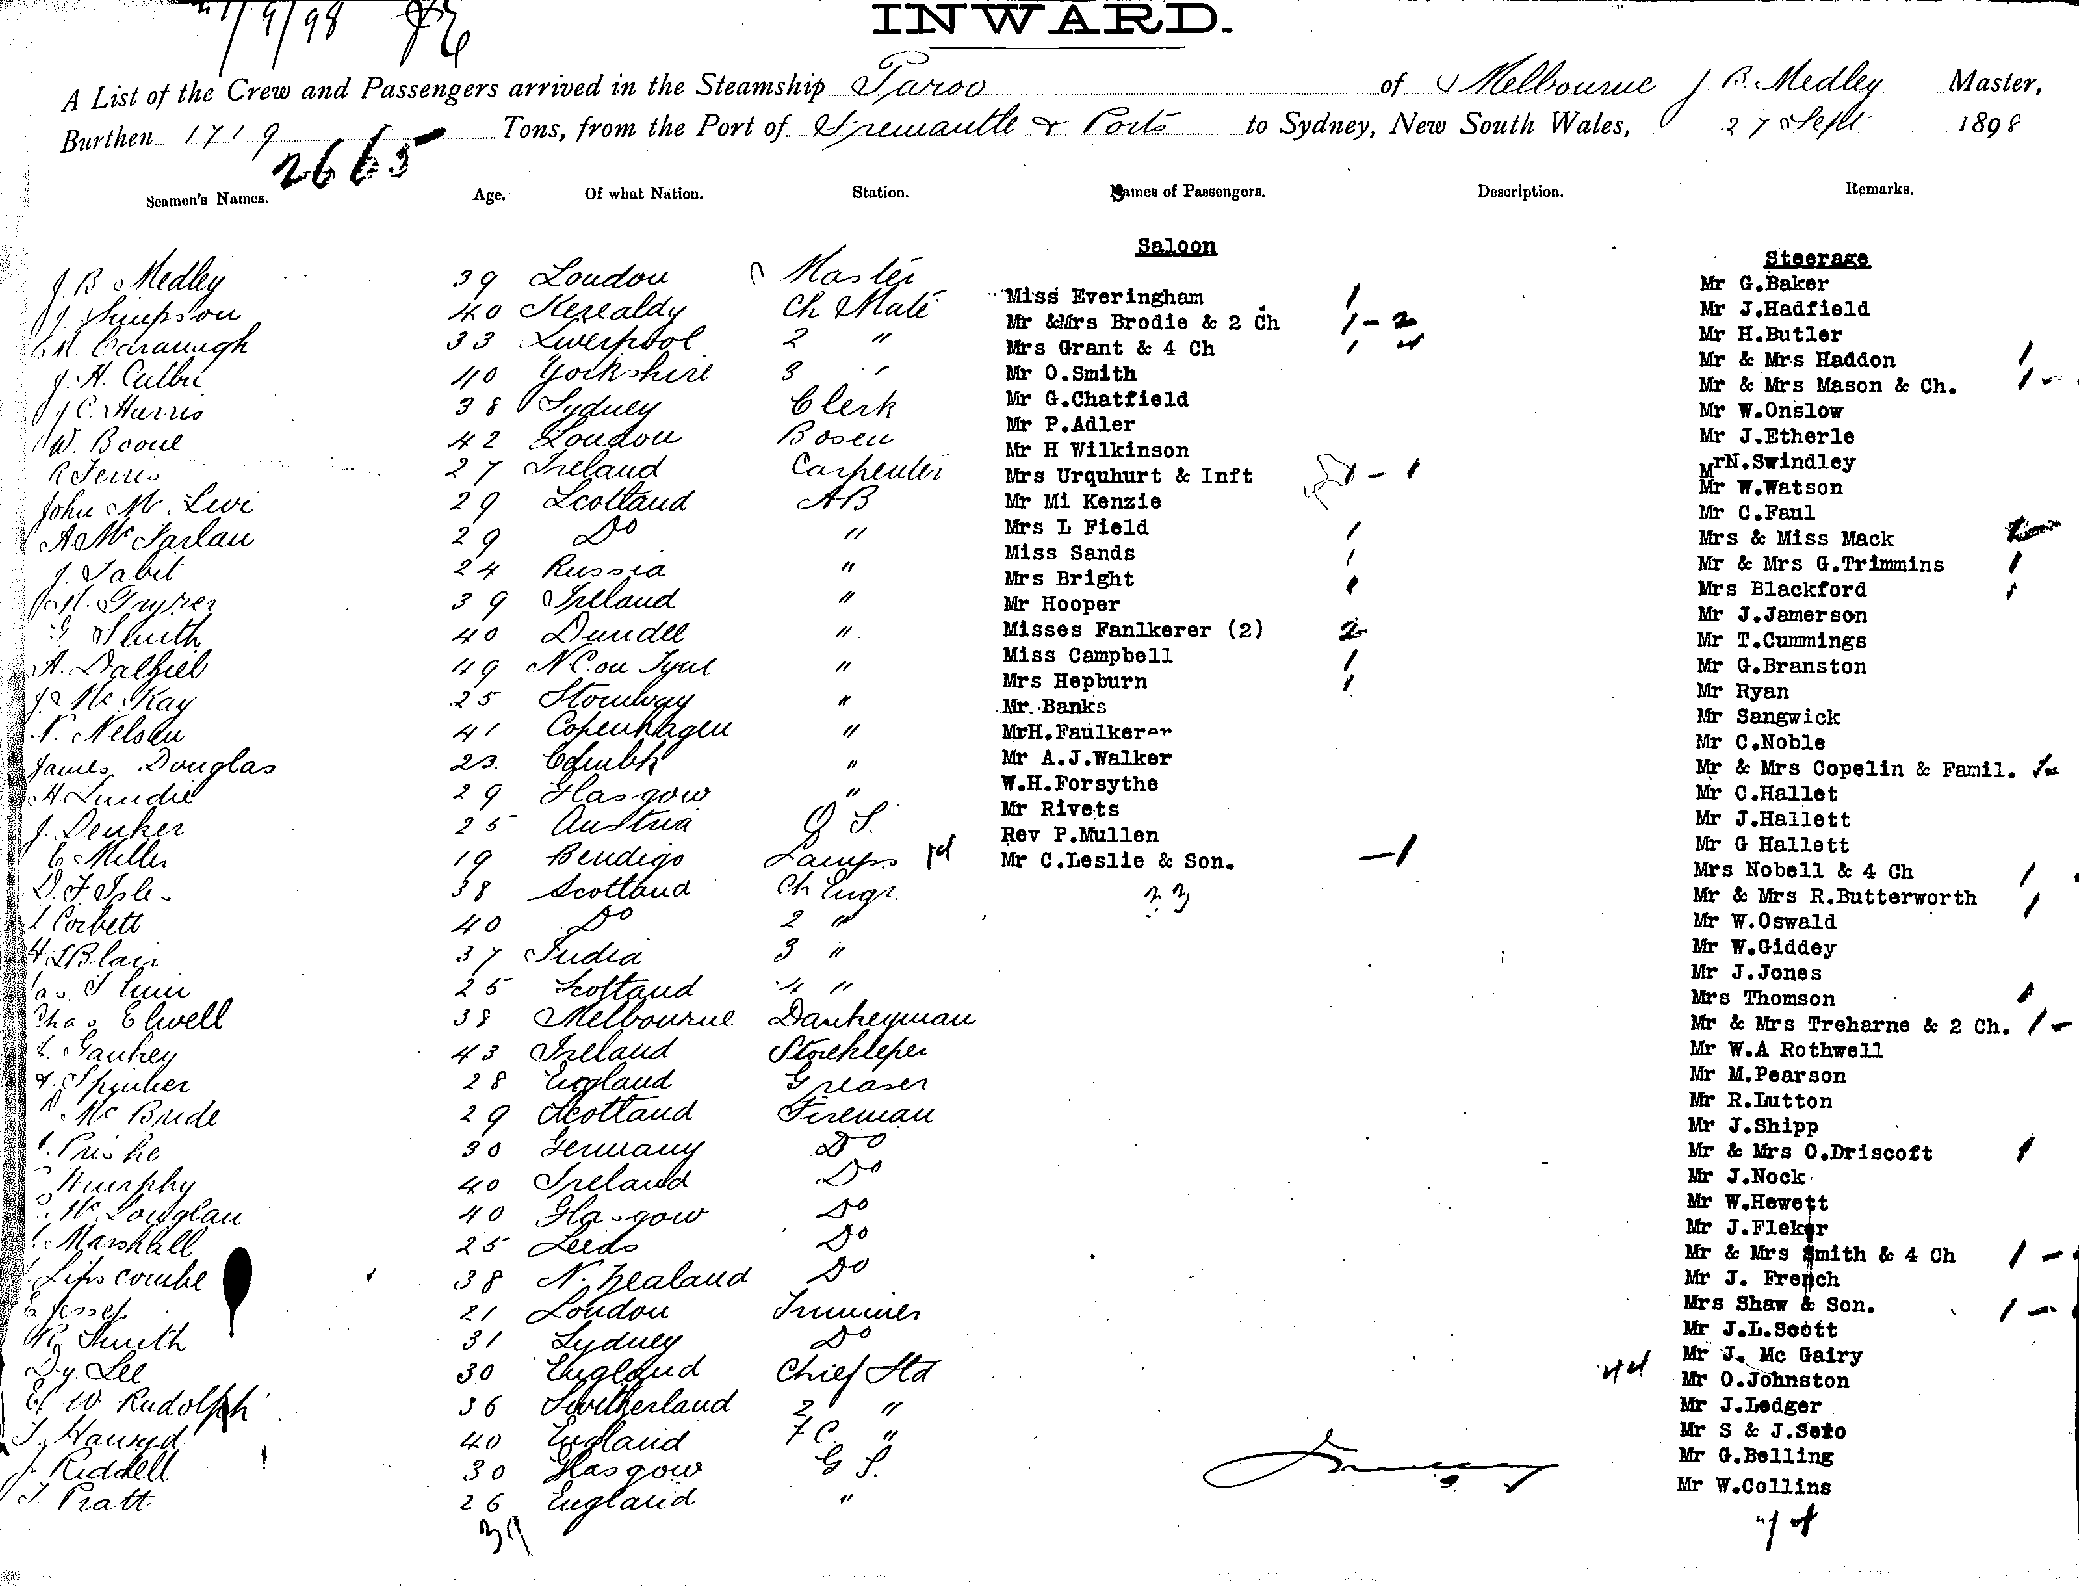 27/9/98
INWARD.
A List of the Crew and Passengers arrived in the Steamship Paroo of Melbourne J B Medley Master,
Burthen 1719 Tons, from the Port of Fremantle & Ports to Sydney, New South Wales, 27 Sept 1898
2665
Seamen's Names. Age. Of what Nation. Station. Names of Passengers. Description. Remarks.
J. B Medley 39 London Master
J Simpson 40 Ch Mate
Cavanagh 33 Liverpool 2 "
J. H. 40 Yorkshire 3 "
J C. Harris 38 Sydney Clerk
W. Boone 42 London Bosen
R 27 Ireland Carpenter
John Mc Levi 29 Scotland AB
A Mc Farlan 29 Do "
J. Tabit 24 Russia "
39 Ireland "
G Smith 40 Dundee "
A. Dalziel 49 N C. on Tyne "
J. Mc Kay 25 "
N. Nelsen 41 Copenhagen "
James Douglas 23 "
H Lundie 29 Glasgow "
J. Denker 25 Austria O S.
C Miller 19 Bendigo Lamps
D. F. Isle 38 Scotland Ch Engr.
Corbett 40 Do 2 "
H Blair 37 India 3 "
25 Scotland 4 "
Chas Elwell 38 Melbourne Dankeyman
43 Ireland Storekeper
28 England Greaser
Mc Bride 29 Scotland Fireman
30 Germany Do
Murphy 40 Ireland Do
40 Glasgow Do
Marshall 25 Leeds Do
Lipscombe 38 N. Zealand Do
Jessep 21 London Trimmer
R Smith 31 Sydney Do
Dy. Lee 30 England Chief Std
W Rudolph 36 Switherland 2 "
40 England F C. "
J. Riddell 30 Glasgow G S.
T Pratt 26 England "
39
Saloon
Miss Everingham 1
Mr &Mrs Brodie & 2 Ch 1 - 2
Mrs Grant & 4 Ch 1 4
Mr O.Smith
Mr G.Chatfield
Mr P.Adler
Mr H Wilkinson
Mrs Urquhurt & Inft 1 - 1
Mr Mi Kenzie
Mrs L Field 1
Miss Sands 1
Mrs Bright 1
Mr Hooper
Misses Fanlkerer (2) 2
Miss Campbell 1
Mrs Hepburn 1
Mr. Banks
MrH.Faulkerer
Mr A.J.Walker
W.H.Forsythe
Mr Rivets
Rev P.Mullen
Mr C.Leslie & Son. -1
33
Steerage
Mr G.Baker
Mr J.Hadfield
Mr H.Butler
Mr & Mrs Haddon 1
Mr & Mrs Mason & Ch. 1 -
Mr W.Onslow
Mr J.Etherle
MrN.Swindley
Mr W.Watson
Mr C.Faul
Mrs & Miss Mack
Mr & Mrs G.Trimmins 1
Mrs Blackford 1
Mr J.Jamerson
Mr T.Cummings
Mr G.Branston
Mr Ryan
Mr Sangwick
Mr C.Noble
Mr & Mrs Copelin & Famil.
Mr C.Hallet
Mr J.Hallett
Mr G Hallett
Mrs Nobell & 4 Ch 1
Mr & Mrs R.Butterworth 1
Mr W.Oswald
Mr W.Giddey
Mr J.Jones
Mrs Thomson 1
Mr & Mrs Treharne & 2 Ch. 1 -
Mr W.A Rothwell
Mr M.Pearson
Mr R.Lutton
Mr J.Shipp
Mr & Mrs O.Driscoft 1
Mr J.Nock
Mr W.Hewett
Mr J.Fleker
Mr & Mrs Smith & 4 Ch 1 -
Mr J. French
Mrs Shaw & Son. 1 -
Mr J.L.Scott
Mr J. Mc Gairy
Mr O.Johnston
Mr J.Ledger
Mr S & J.Seto
Mr G.Belling
Mr W.Collins